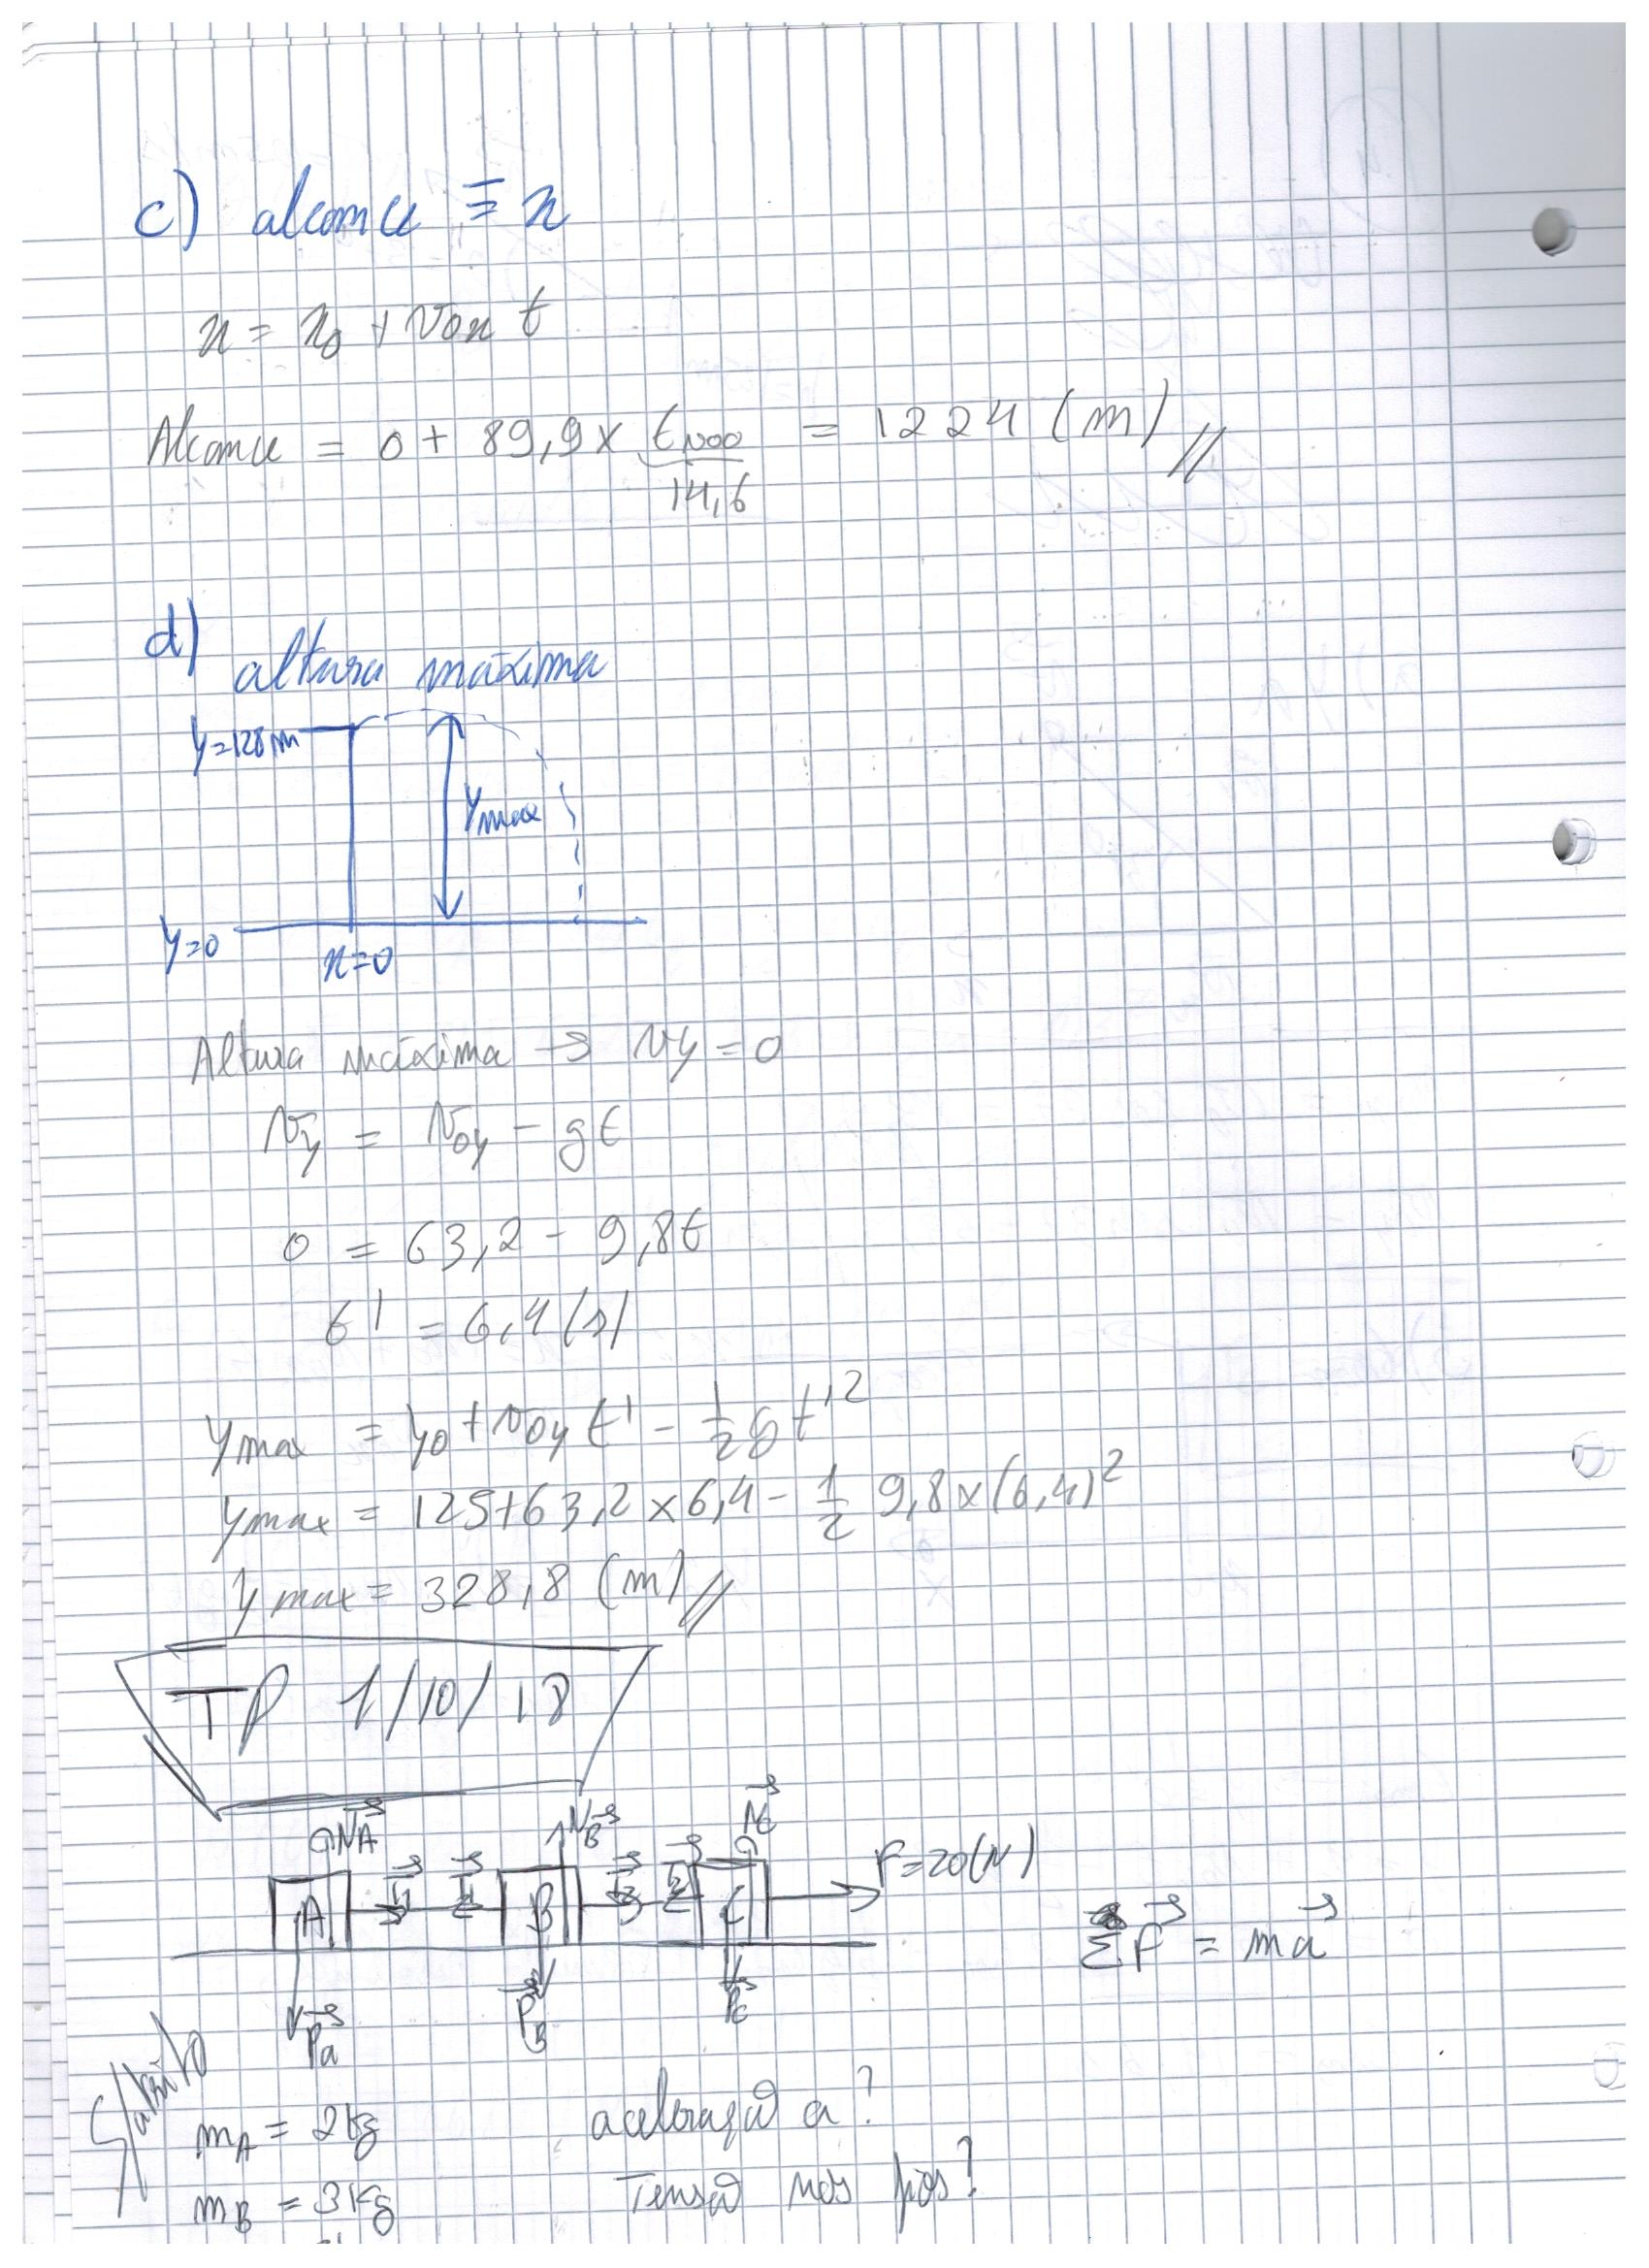 c) alcance ≡ x
x = x0 + v0x t
Alcance = 0 + 89,9 × tvoo = 1224 (m) //
14,6
d) altura máxima
y=128m
ymax
y=0
x=0
Altura máxima → vy = 0
vy = v0y - gt
0 = 63,2 - 9,8t
t' = 6,4 (s)
ymax = y0 + v0y t' - 1/2 g t'²
ymax = 125+63,2 × 6,4 - 1/2 9,8×(6,4)²
ymax = 328,8 (m) //
TP 1/10/18
NA NB NC
A T1 T1 B T2 T2 C F=20(N)
ΣF = ma
Pa PB PC
S/atrito
mA = 2kg
aceleração a?
mB = 3kg
Tensão nos fios?